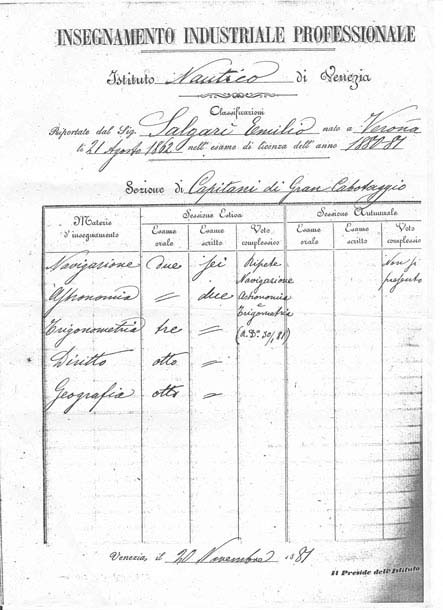 INSEGNAMENTO INDUSTRIALE PROFESSIONALE
Istituto Nautico di Venezia
Classificazioni
Riportate dal Sig. Salgari Emilio nato a Verona
li 21 Agosto 1862 nell'esame di licenza dell'anno 1880-81
Sezione di Capitani di Gran Cabotaggio
Materie d'insegnamento Sessione Estiva Sessione Autunnale
Esame orale Esame scritto Voto complessivo Esame orale Esame scritto Voto complessivo
Navigazione due sei Ripete Non si
Navigazione presentò
Astronomia " due Astronomia
e
Trigonometria tre " Trigometria
(a. D. 30/81)
Diritto otto "
Geografia otto "
Venezia, il 20 Novembre 1881
Il Preside dell'Istituto